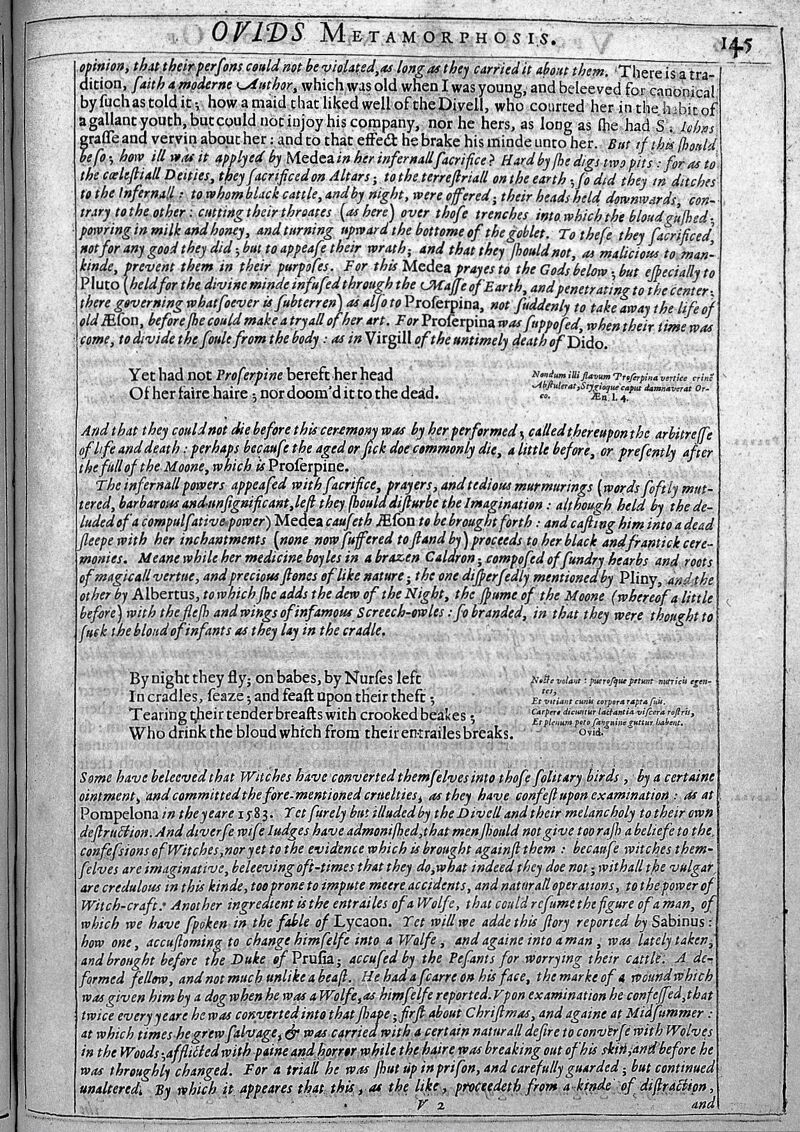 OVIDS METAMORPHOSIS.
145
opinion, that their perſons could not be violated, as long as they carried it about them. There is a tra-
dition, ſaith a moderne Author, which was old when I was young, and beleeved for canonical
by ſuch as told it; how a maid that liked well of the Divell, who courted her in the habit of
a gallant youth, but could not injoy his company, nor he hers, as long as ſhe had S. Iohns
graſſe and vervin about her: and to that effect he brake his minde unto her. But if this ſhould
be ſo; how ill was it applyed by Medea in her infernall ſacrifice? Hard by ſhe digs two pits: for as to
the cœleſtiall Deities, they ſacrificed on Altars; to the terreſtriall on the earth; ſo did they in ditches
to the Infernall: to whom black cattle, and by night, were offered; their heads held downwards, con-
trary to the other: cutting their throates (as here) over thoſe trenches into which the bloud guſhed;
powring in milk and honey, and turning upward the bottome of the goblet. To theſe they ſacrificed,
not for any good they did; but to appeaſe their wrath; and that they ſhould not, as malicious to man-
kinde, prevent them in their purpoſes. For this Medea prayes to the Gods below; but eſpecially to
Pluto (held for the divine minde infuſed through the Maſſe of Earth, and penetrating to the center;
there governing whatſoever is ſubterren) as alſo to Proſerpina, not ſuddenly to take away the life of
old Æſon, before ſhe could make a tryall of her art. For Proſerpina was ſuppoſed, when their time was
come, to divide the ſoule from the body: as in Virgill of the untimely death of Dido.
Yet had not Proſerpine bereft her head
Of her faire haire; nor doom'd it to the dead.
Nondum illi flavum Proſerpina vertice crinē
Abſtulerat, Stygioque caput damnaverat Or-
co. Æn. l. 4.
And that they could not die before this ceremony was by her performed; called thereupon the arbitreſſe
of life and death: perhaps becauſe the aged or ſick doe commonly die, a little before, or preſently after
the full of the Moone, which is Proſerpine.
The infernall powers appeaſed with ſacrifice, prayers, and tedious murmurings (words ſoftly mut-
tered, barbarous and unſignificant, leſt they ſhould diſturbe the Imagination: although held by the de-
luded of a compulſative power) Medea cauſeth Æſon to be brought forth: and caſting him into a dead
ſleepe with her inchantments (none now ſuffered to ſtand by) proceeds to her black and frantick cere-
monies. Meane while her medicine boyles in a brazen Caldron; compoſed of ſundry hearbs and roots
of magicall vertue, and precious ſtones of like nature; the one diſperſedly mentioned by Pliny, and the
other by Albertus, to which ſhe adds the dew of the Night, the ſpume of the Moone (whereof a little
before) with the fleſh and wings of infamous Screech-owles: ſo branded, in that they were thought to
ſuck the bloud of infants as they lay in the cradle.
By night they fly; on babes, by Nurſes left
In cradles, ſeaze; and feaſt upon their theft;
Tearing their tender breaſts with crooked beakes;
Who drink the bloud which from their entrailes breaks.
Nocte volant: puerosque petunt nutricis egen-
tes,
Et vitiant cunis corpora rapta ſuis.
Carpere dicuntur lactantia viſcera roſtris,
Et plenum poto ſanguine guttur habent.
Ovid.
Some have beleeved that Witches have converted themſelves into thoſe ſolitary birds, by a certaine
ointment, and committed the fore-mentioned cruelties, as they have confeſt upon examination: as at
Pompelona in the yeare 1583. Yet ſurely but illuded by the Divell and their melancholy to their own
deſtruction. And diverſe wiſe Iudges have admoniſhed, that men ſhould not give too raſh a beliefe to the
confeſſions of Witches, nor yet to the evidence which is brought againſt them: becauſe witches them-
ſelves are imaginative, beleeving oft-times that they do, what indeed they doe not; withall the vulgar
are credulous in this kinde, too prone to impute meere accidents, and naturall operations, to the power of
Witch-craft. Another ingredient is the entrailes of a Wolfe, that could reſume the figure of a man, of
which we have ſpoken in the fable of Lycaon. Yet will we adde this ſtory reported by Sabinus:
how one, accuſtoming to change himſelfe into a Wolfe, and againe into a man, was lately taken,
and brought before the Duke of Pruſia; accuſed by the Peſants for worrying their cattle. A de-
formed fellow, and not much unlike a beaſt. He had a ſcarre on his face, the marke of a wound which
was given him by a dog when he was a Wolfe, as himſelfe reported. Vpon examination he confeſſed, that
twice every yeare he was converted into that ſhape; firſt about Chriſtmas, and againe at Midſummer:
at which times he grew ſalvage, & was carried with a certain naturall deſire to converſe with Wolves
in the Woods; afflicted with paine and horror while the haire was breaking out of his skin, and before he
was throughly changed. For a triall he was ſhut up in priſon, and carefully guarded; but continued
unaltered. By which it appeares that this, as the like, proceedeth from a kinde of diſtraction,
V 2
and